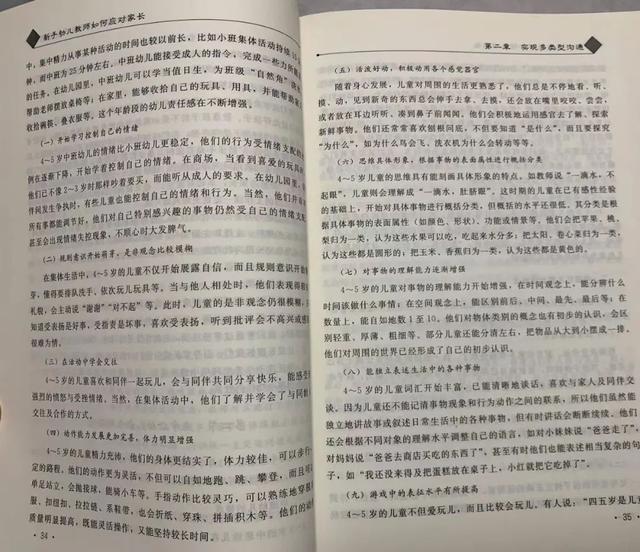 新手幼儿教师如何应对家长
中，集中精力从事某种活动的时间也较以前长，比如小班集体活动持续15
钟，而中班为25分钟左右。中班幼儿能接受成人的指令，完成一些力所能及
的任务。在幼儿园里，中班幼儿可以学当值日生，为班级“自然角”
帮助老师摆放桌椅等；在家里，能够收拾自己的玩具、用具，并能帮助
收拾碗筷、叠衣服等。这个年龄段的幼儿责任感在不断增强。
（一）开始学习控制自己的情绪
4～5岁中班幼儿的情绪比小班幼儿更稳定，他们的行为受情绪支配的
例在逐渐下降，开始学着控制自己的情绪。在商场，当看到喜爱的玩具时，
他们已不像2～3岁时那样吵着要买，而能听从成人的要求。在幼儿园里，
件间发生争执时，有些儿童也能控制自己的情绪和行为。当然，他们并非对
所有事都能调节好，他们对自己特别感兴趣的事物仍然受自己的情绪支配，
甚至会出现情绪失控现象，不顺心时大发脾气。
（二）规则意识开始萌芽，是非观念比较模糊
在集体生活中，4～5岁儿童不仅开始展露自信，而且规则意识开始萌
芽，懂得要排队洗手、依次玩儿玩具等。当与他人相处时，他们表现得
礼貌，会主动说“谢谢”“对不起”等。此时，儿童的是非观念仍很模糊，只
知道受表扬是好事，受指责是坏事，喜欢受表扬，听到批评会不高兴或感到
很难为情。
（三）在活动中学会交往
4～5岁的儿童喜欢和同伴一起玩儿，会与同伴共同分享快乐，能感受
强烈的愤怒与受挫情绪。当然，在集体活动中，他们了解并学会了与同伴
交往及合作的方式。
（四）动作能力发展更加完善，体力明显增强
4～5岁的儿童精力充沛，他们的身体更结实了，体力较佳，可以步行一
定的路程。他们的动作更为灵活，不但可以自如地跑、跳、攀登，而且可以
单足站立，会抛接球，能骑小车等。手指动作比较灵巧，可以熟练地穿脱衣
服、扣纽扣、拉拉链、系鞋带，也会折纸、穿珠、拼插积木等。他们的动作
质量明显提高，既能灵活操作，又能坚持较长时间。
· 34 ·
第二章 实现多类型沟通
（五）活泼好动，积极动用各个感觉器官
随着身心发展，儿童对周围的生活更熟悉了，他们总是不停地看、听、
摸、动，见到新奇的东西总会伸手去拿、去摸，还会放在嘴里咬咬、尝尝，
或者放在耳边听听、凑到鼻子前闻闻。他们会积极地运用感官去了解、探索
新鲜事物。他们还常常喜欢刨根问底，不但要知道“是什么”，而且要探究
“为什么”，如为什么鸟会飞、洗衣机为什么会转动等等。
（六）思维具体形象，根据事物的表面属性进行概括分类
4～5岁儿童的思维具有能刻画具体形象的特点，如教师说“一滴水，不
起眼”，儿童则会理解成“一滴水，肚脐眼”。这时期的儿童在已有感性经验
的基础上，开始对具体事物进行概括分类，但概括的水平还很低。其分类是根
据具体事物的表面属性（如颜色、形状）、功能或情景等。他们会把苹果、桃、
梨归为一类，认为这些水果可以吃，吃起来水分多；把太阳、卷心菜归为一类，
认为这些都是圆形的；把玉米、香蕉归为一类，认为这些都是黄色的。
（七）对事物的理解能力逐渐增强
4～5岁儿童对事物的理解能力开始增强，在时间概念上，能分辨什么
时间该做什么事情；在空间概念上，能区别前后、中间、最先、最后等；在
数量上，能自如地数1至10。他们对物体类别的概念也有初步的认识，会区
别轻重、厚薄、粗细等。部分儿童还能分清左右，把物品从大到小摆成一排。
他们对周围的世界已经形成了自己的初步认识。
（八）能独立表达生活中的各种事物
4～5岁的儿童词汇开始丰富，已能清晰地谈话，喜欢与家人及同伴交
谈。因为儿童还不能记清事物现象和行为动作之间的联系，所以他们虽然能
独立地讲故事或叙述日常生活中的各种事物，但有时讲话会断断续续。他们
还会根据不同对象的理解水平调整自己的语言，如对小妹妹说“爸爸走了”，
对妈妈说“爸爸去商店买吃的东西了”，甚至有时他们也能表述相当复杂的句
子，如“我还没来得及把蛋糕放在桌子上，小红就把它吃掉了”。
（九）游戏中的表征水平有所提高
4～5岁的儿童不但爱玩儿，而且比较会玩儿。有人说：“四五岁是儿
35 ·